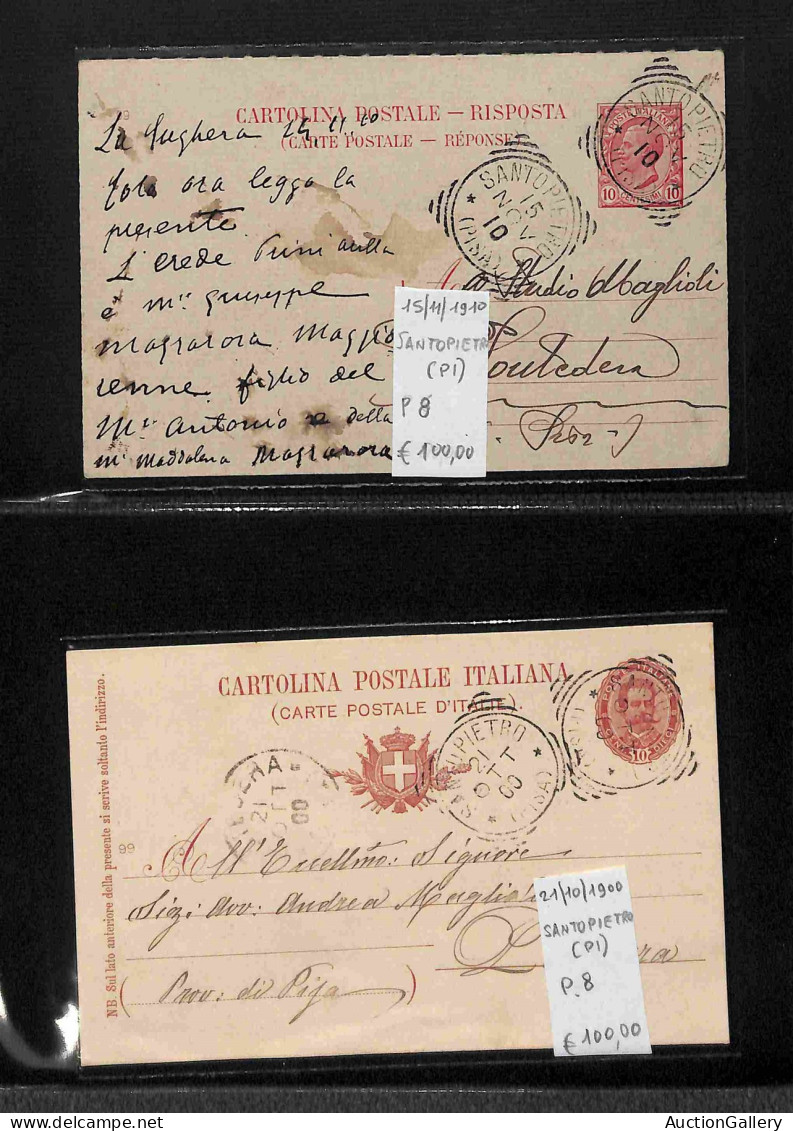 99
CARTOLINA POSTALE — RISPOSTA
(CARTE POSTALE — RÉPONSE)
POSTE ITALIANE
10 CENTESIMI 10
SANTOPIETRO
15
NOV
10
(PISA)
SANTOPIETRO
15
NOV
10
La Sughera 14, 11. 10
ora leggo la
presente.
L'erede
è Mo: Giuseppe
Massarosa
figlio del
Mo: Antonio e della
Ma Maddalena
Studio Maglioli
Pontedera
15/11/1910
SANTOPIETRO
(PI)
P 8
€ 100,00
NB. Sul lato anteriore della presente si scrive soltanto l'indirizzo.
CARTOLINA POSTALE ITALIANA
(CARTE POSTALE D'ITALIE).
SANTOPIETRO
21
OTT
00
(PISA)
21
OTT
00
99
All'Eccellmo: Signore
Sig: Avv: Andrea
(Prov: di Pisa
21/10/1900
SANTOPIETRO
(PI)
P. 8
€ 100,00
AuctionGallery